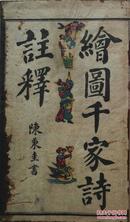 繪圖千家詩
註釋
陳東圭書